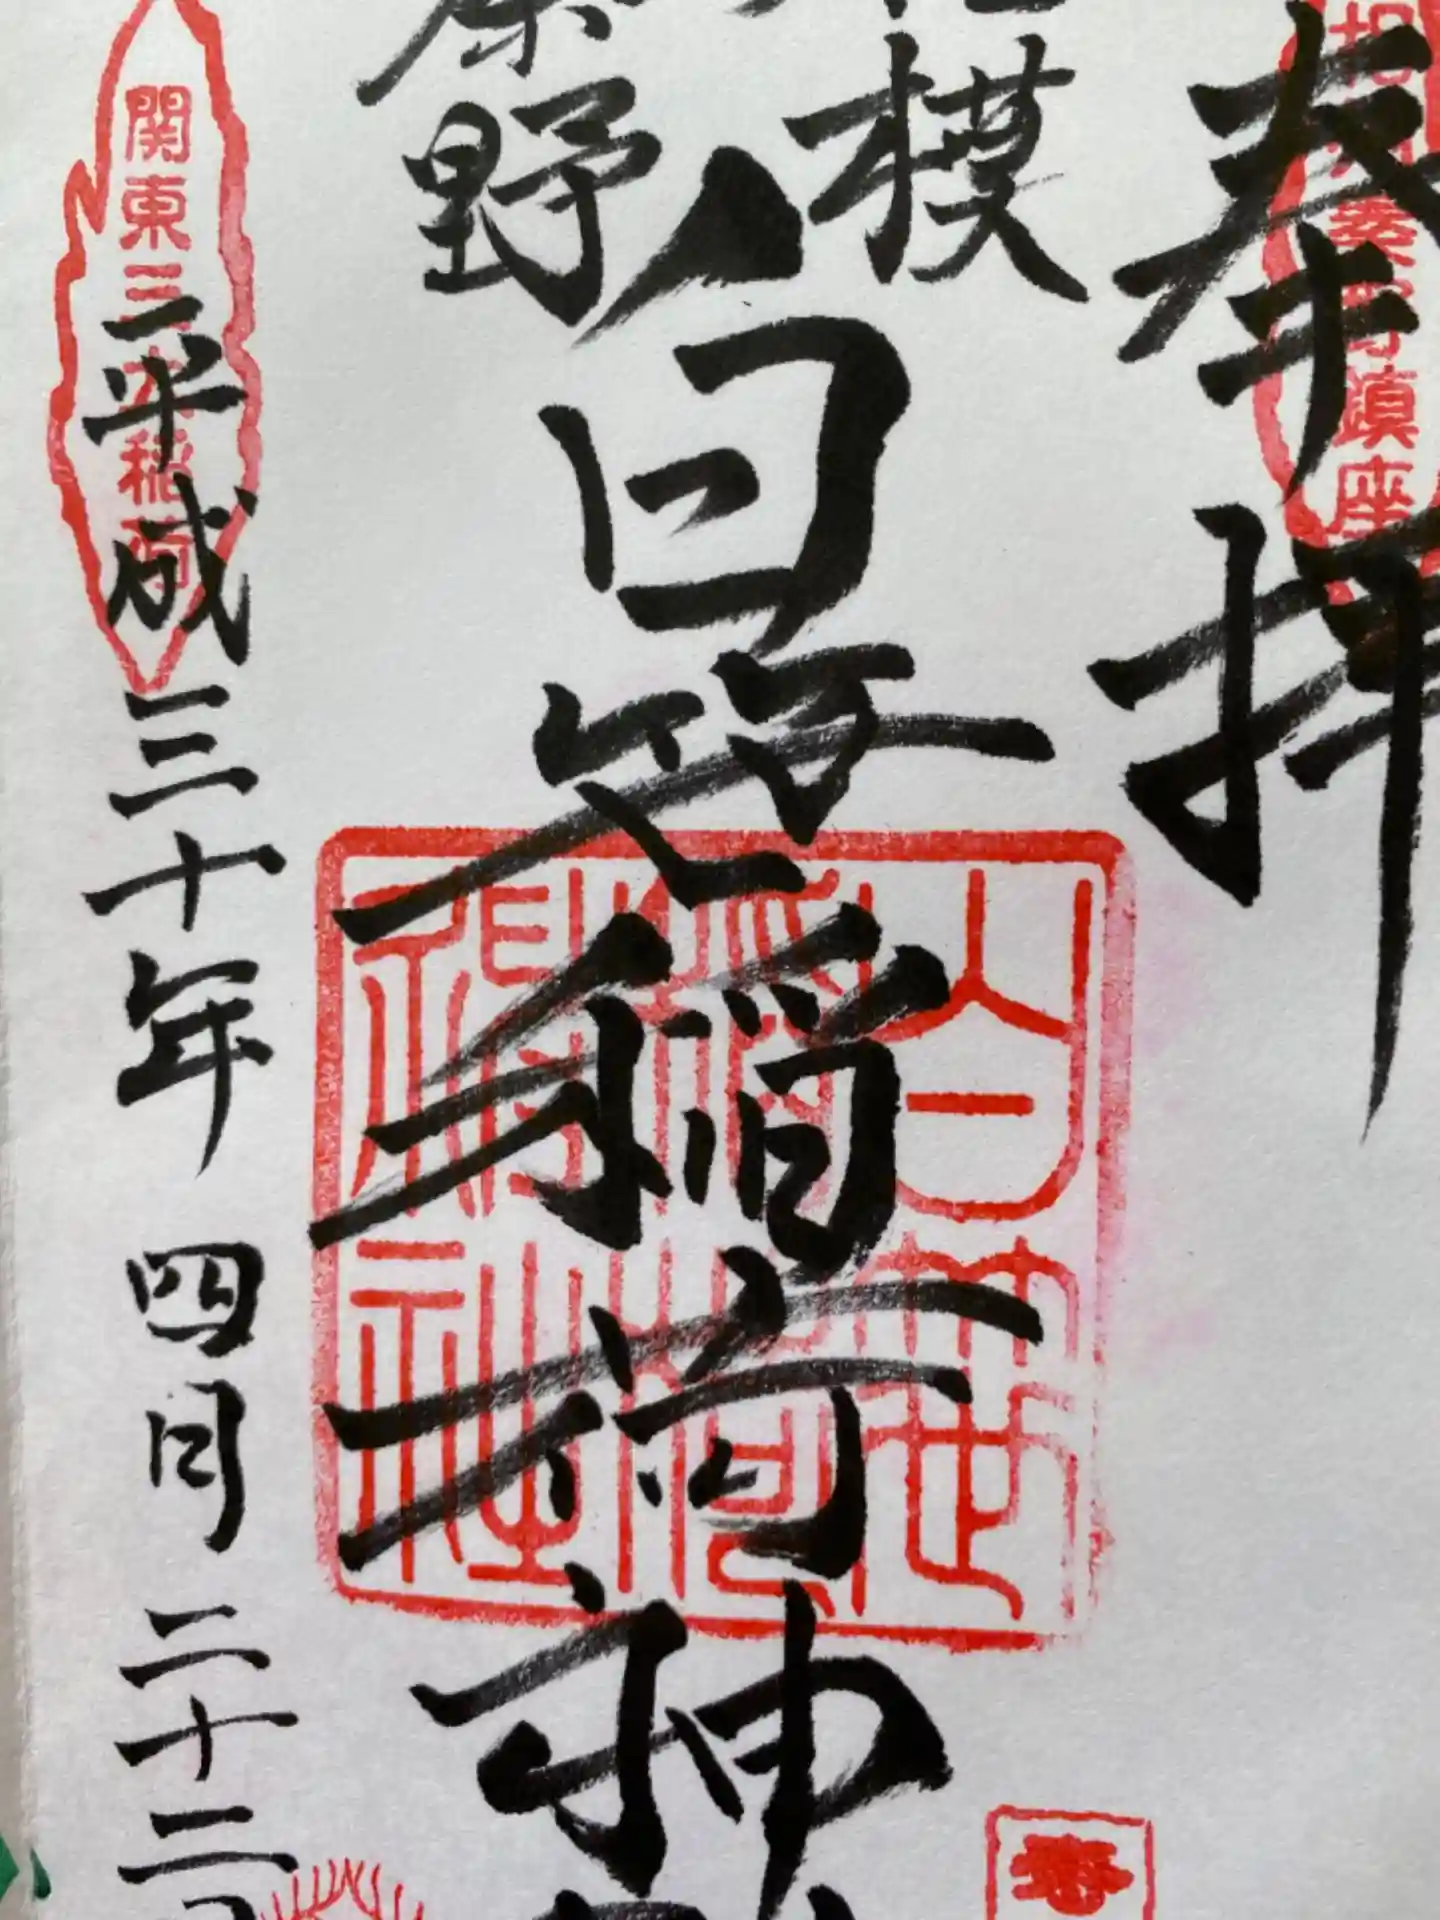 奉拝
相模
秦野
白笹稲荷神
平成三十年 四月 二十二日
関東三大稲荷
鎮座
白笹
稲荷
神社
春